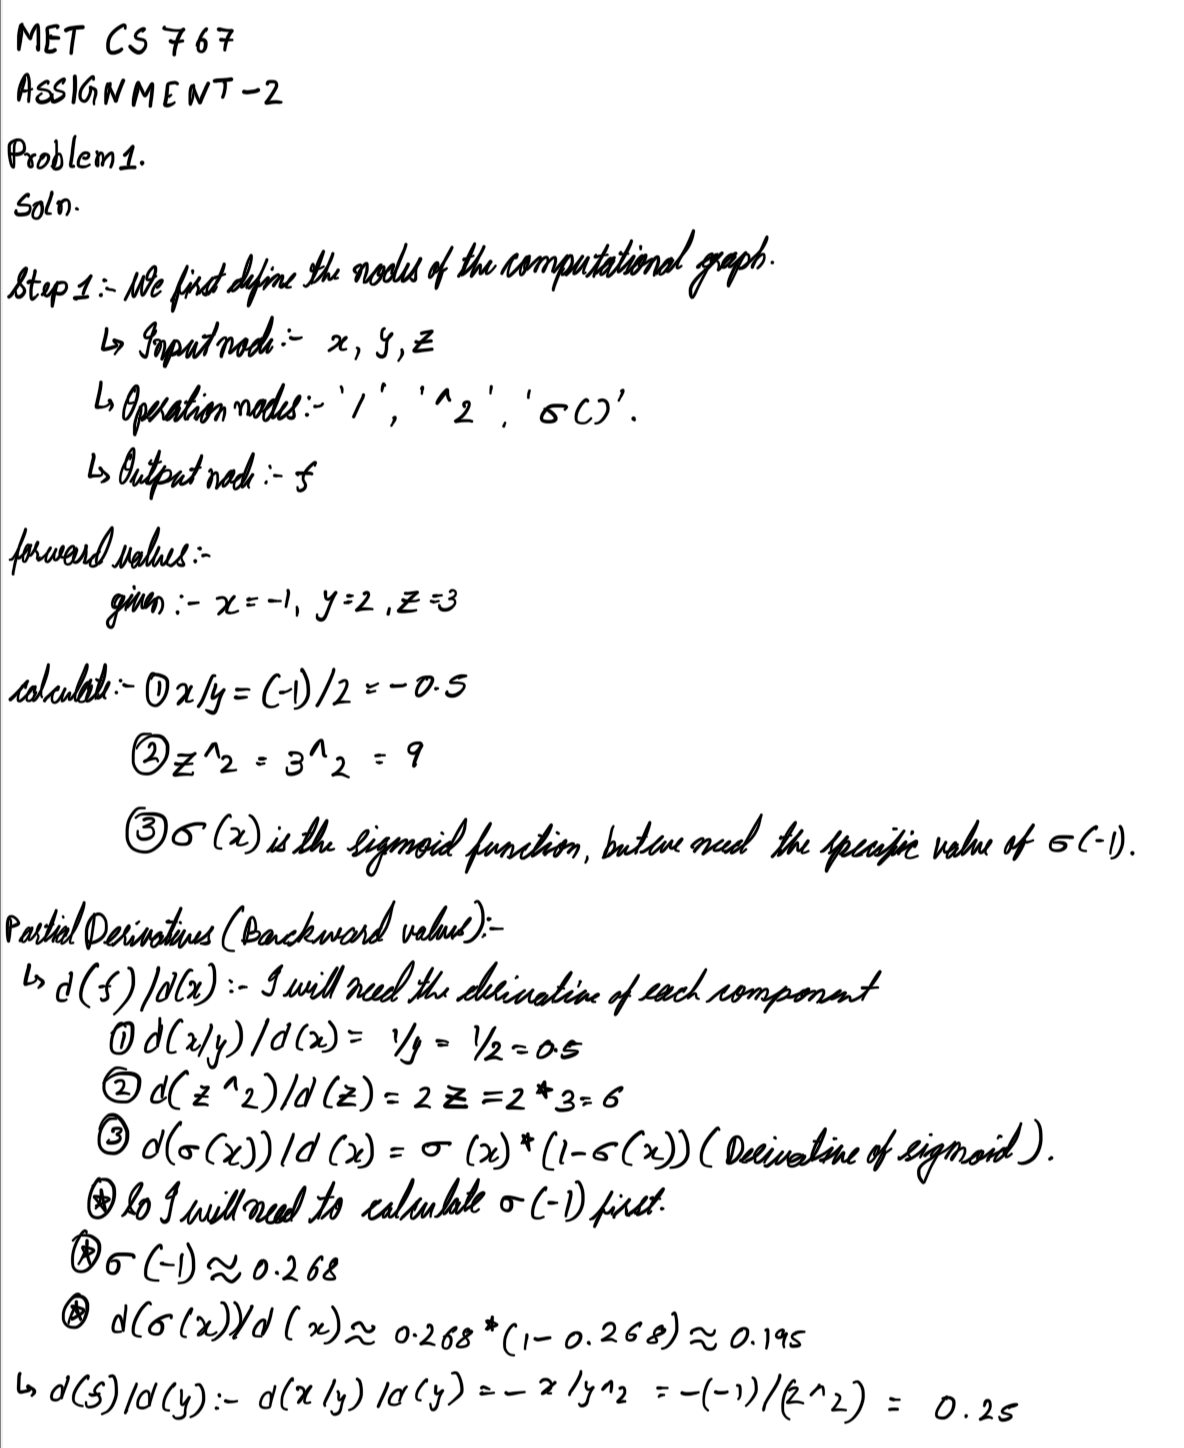 MET CS 767
ASSIGNMENT-2
Problem 1.
Soln.
Step 1:- We first define the nodes of the computational graph.
↳ Input node:- x, y, z
↳ Operation nodes:- '/', '^2', 'σ()'.
↳ Output node:- f
forward values:-
given:- x=-1, y=2, z=3
calculate:- ① x/y = (-1)/2 = -0.5
② z^2 = 3^2 = 9
③ σ(x) is the sigmoid function, but we need the specific value of σ(-1).
Partial Derivatives (Backward values):-
↳ d(f)/d(x):- I will need the derivative of each component
① d(x/y)/d(x) = 1/y = 1/2 = 0.5
② d(z^2)/d(z) = 2z = 2*3 = 6
③ d(σ(x))/d(x) = σ(x)*(1-σ(x)) (Derivative of sigmoid).
⍟ So I will need to calculate σ(-1) first.
⍟ σ(-1) ≈ 0.268
⍟ d(σ(x))/d(x) ≈ 0.268*(1-0.268) ≈ 0.195
↳ d(f)/d(y):- d(x/y)/d(y) = -x/y^2 = -(-1)/(2^2) = 0.25